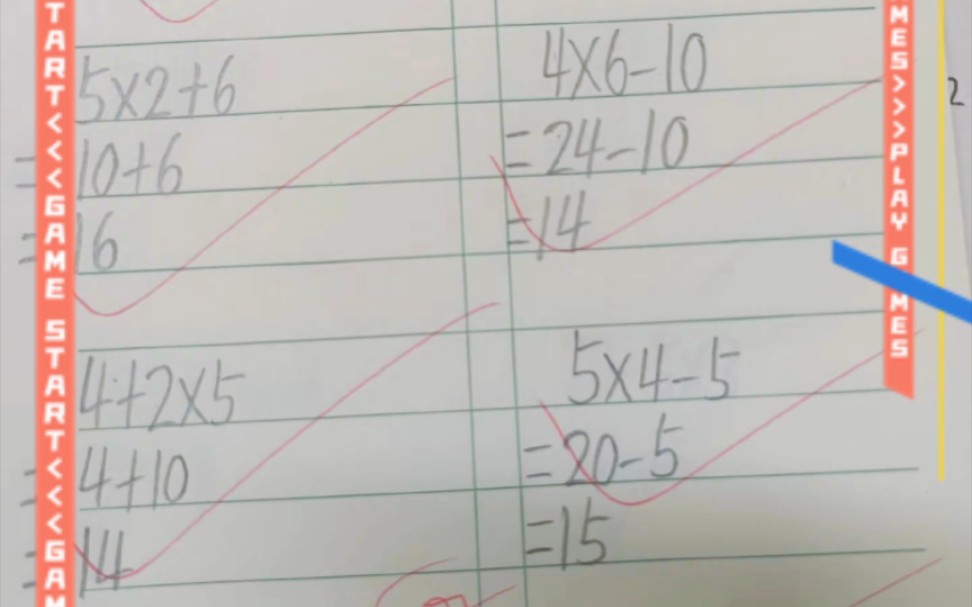 5×2+6
=10+6
=16
4×6-10
=24-10
=14
4+2×5
=4+10
=14
5×4-5
=20-5
=15
TART<<<GAME START<<<GAM
MES>>>PLAY G MES
2